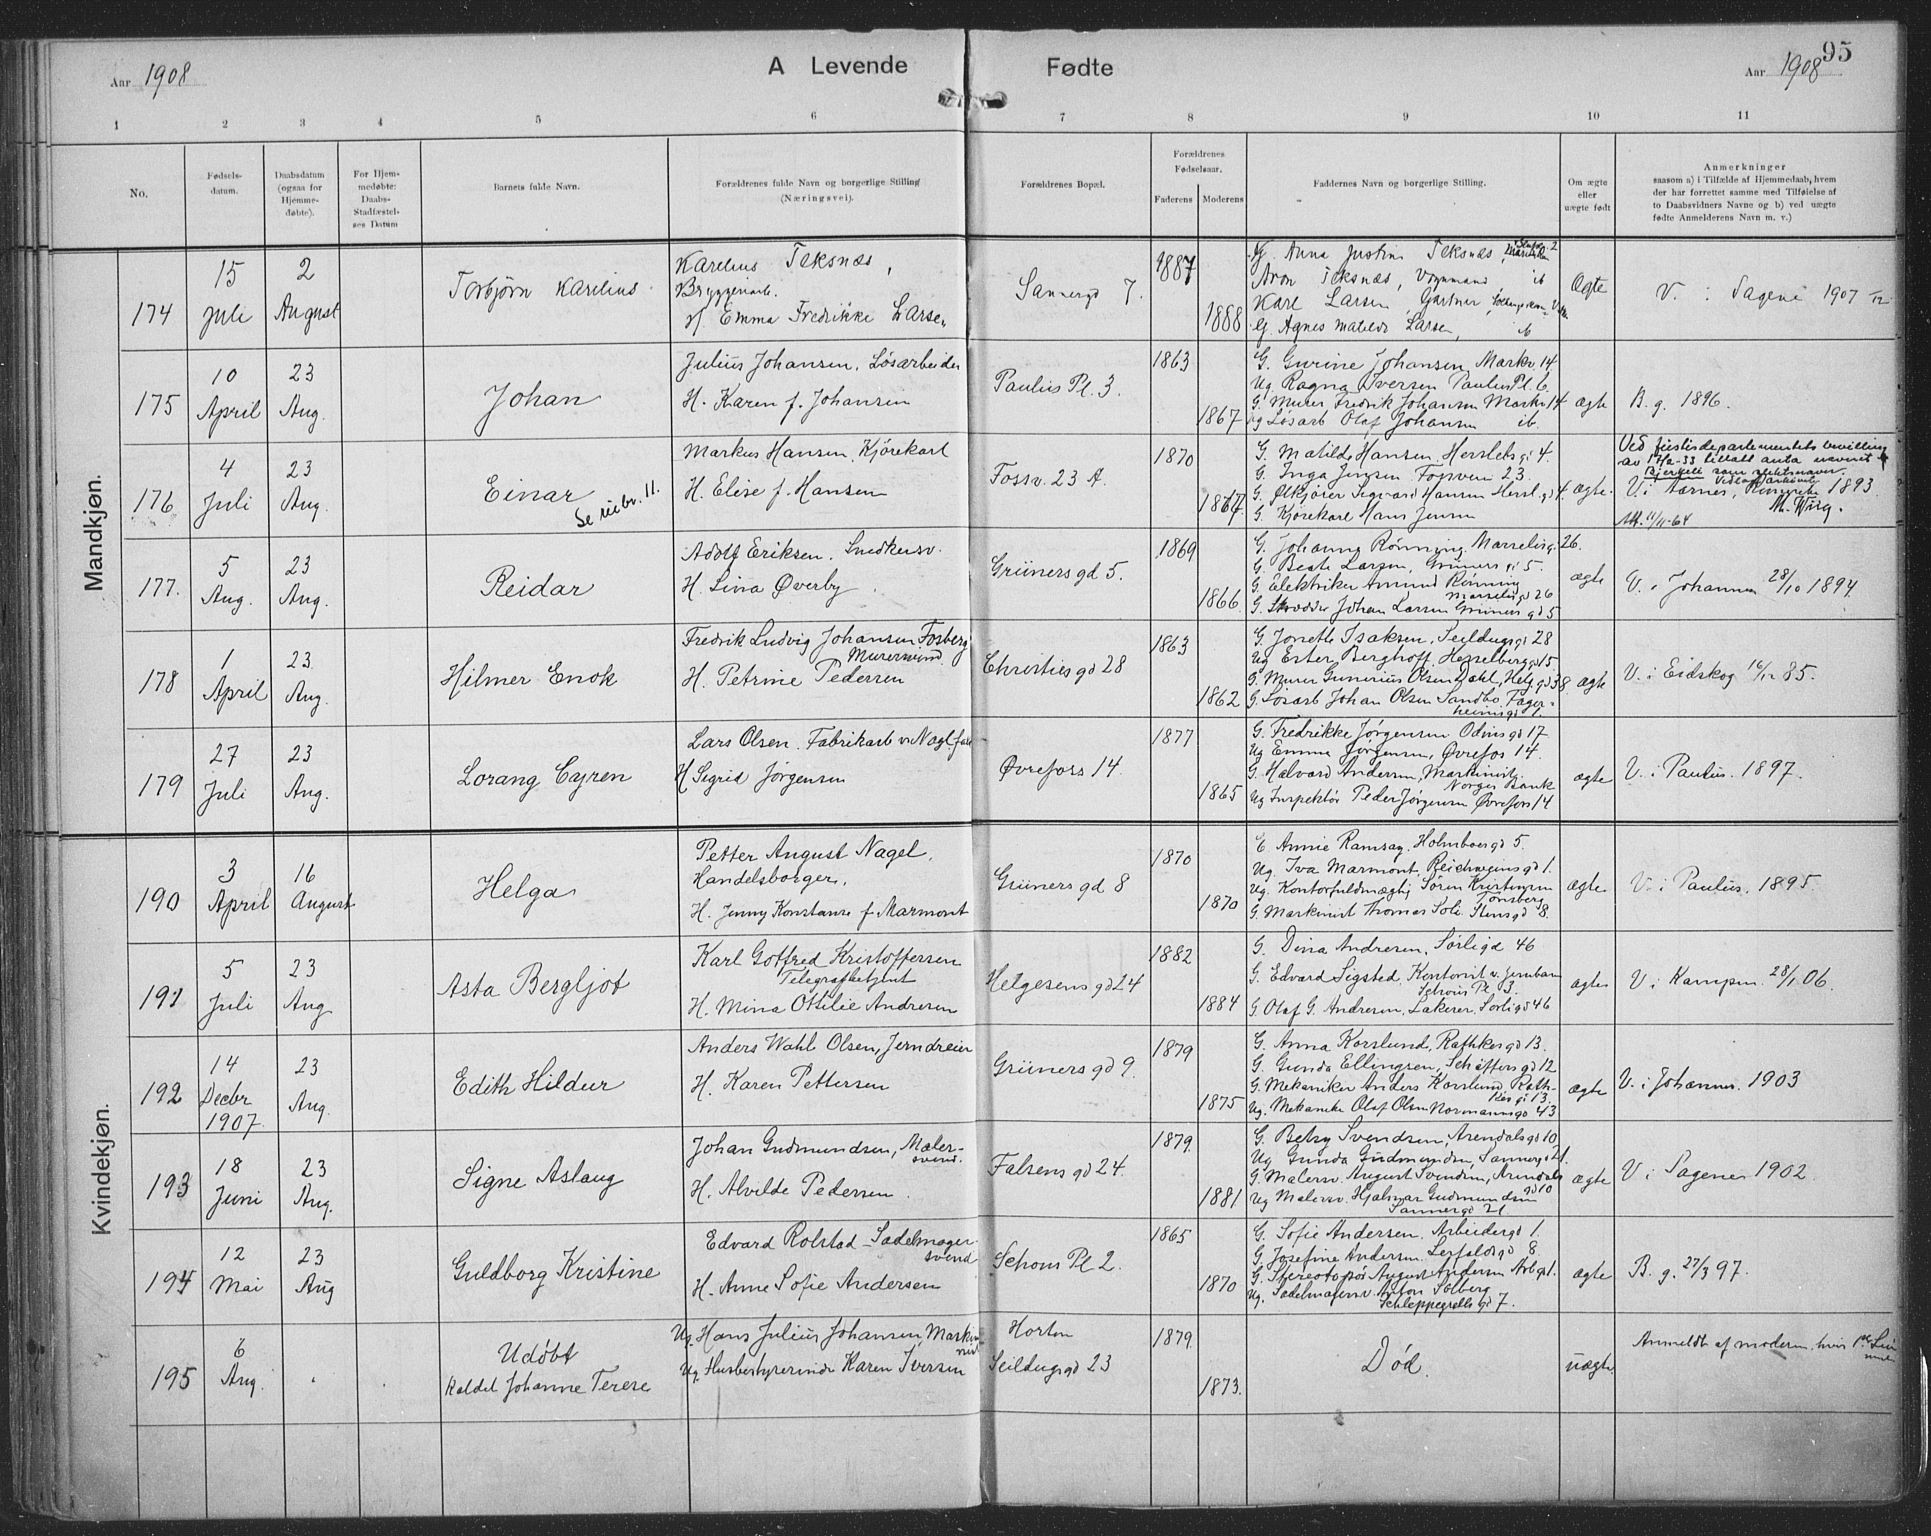 Aar 1908
A Levende Fødte
Aar 1908
95
1 2 3 4 5 6 7 8 9 10 11
No.
Fødsels-
datum.
Daabsdatum
(ogsaa for
Hjemme-
døbte).
For Hjem-
medøbte:
Daabs-
Stadfæstel-
ses Datum
Barnets fulde Navn.
Forældrenes fulde Navn og borgerlige Stilling
(Næringsvei).
Forældrenes Bopæl.
Forældrenes
Fødselsaar.
Faderens Moderens
Faddernes Navn og borgerlige Stilling.
Om ægte
eller
uægte født
Anmerkninger
saasom a) i Tilfælde af Hjemmedaab, hvem
der har forrettet samme med Tilføielse af
to Daabsvidners Navne og b) ved uægte
fødte Anmelderens Navn m. v.)
Mandkjøn.
174
15
Juli
2
August
Torbjørn Karelius
Karelius Teksnæs,
Bryggeriarb.
H Emma Fredrikke Larsen
Sannergd 7.
1887
1888
G. Anna Justine Teksnæs,
Aron Teksnæs, Vognmand ib
Karl Larsen, Gartner,
G. Agnes Matilde Larsen, ib
Ægte
V. i Sagene 1907
175
10
April
23
Aug.
Johan
Julius Johansen, Løsarbeider
H. Karen f. Johansen
Paulus Pl. 3.
1863
1867
G. Gurine Johansen Markv. 14
Ug Ragna Iversen Paulus Pl. 6.
G. Murer Fredrik Johansen Markv 14
Ug Løsarb Olaf Johansen ib.
ægte
B. g. 1896.
176
4
Juli
23
Aug.
Einar
Se
11.
Markus Hansen, Kjørekarl
H. Elise f. Hansen
Fossv. 23 A.
1870
1867.
G. Matilde Hansen. Herslebsg. 4.
G. Inga Jensen Fossveien 23.
G. Ølkjører Sigvard Hansen Hersl. gd 4.
G. Kjørekarl Hans Jensen
ægte.
Ved justisdepartementets bevilling
av 17/2-33 tillatt anta navnet
Bjerkeli som slektsnavn.
V. i Aarnes, Romerike 1893.
177.
5
Aug.
23
Aug.
Reidar
Adolf Eriksen. Snedkersv.
H. Lina Øverby
Grünersgd 5.
1869
1866.
G. Johanne Rønning. Marselisg. 26.
G. Beate Larsen, Grünersg. 5.
G. Elektriker Amund Rønning
Marselisgd 26
G. Skrædder Johan Larsen Grünersgd 5
ægte
V. i Johannes 28/10 1894
178
1
April
23
Aug.
Hilmer Enok
Fredrik Ludvig Johansen Fosberg
Murersvend.
H. Petrine Pedersen
Christiesgd 28
1863
1862
G. Jonette Isaksen, Seildugsgd 28
Ug Ester Berghoff, Hesselbergsgd 15.
G. Murer Gunerius Olsen Dahl, Helg. gd 38.
G. Løsarb Johan Olsen Sandbo. Fager-
heimsgd 1.
ægte
V. i Eidskog 16/12 85.
179
27
Juli
23
Aug.
Lorang Cyren
Lars Olsen. Fabrikarb v. Nagl. fab
H Sigrid Jørgensen
Øvrefors 14
1877
1865
G. Fredrikke Jørgensen Odinsgd 17
Ug Emma Jørgensen, Øvrefos 14.
G. Halvard Andersen, Maskinist,
Norges Bank
Ug Inspektør Peder Jørgensen Øvrefors 14
ægte
V. i Paulus. 1897.
Kvindekjøn.
190
3
April
16
August
Helga
Petter August Nagel.
Handelsborger,
H. Jenny Konstanse f. Marmont
Grünersgd 8
1870
1870
E Annie Ramsay. Holmboesgd 5.
Ug. Iva Marmont, Reichweinsgd 1.
Ug. Kontorfuldmægtig Søren Kristensen
Tønsberg
G. Maskinist Thomas Solli. Stensgd 8.
ægte
V. i Paulus. 1895.
191
5
Juli
23
Aug
Asta Bergljot
Karl Gotfred Kristoffersen
Telegrafbetjent
H. Mina Ottilie Andresen
Helgesensgd 24
1882
1884
G. Dina Andresen, Sørligd 46
G. Edvard Sigsted, Kontorist v. Jernban
Schous Pl. 3.
G. Olaf G. Andresen, Lakerer. Sørligd 46
ægte
V. i Kampen. 28/1 06.
192
14
Decbr
1907
23
Aug.
Edith Hildur
Anders Wahl Olsen, Jerndreier
H. Karen Pettersen
Grünersgd 9.
1879
1875
G. Anna Korslund, Rathkesgd 13.
G. Gunda Ellingsen, Schäffersgd 12
G. Mekaniker Anders Korslund, Rath-
kesgd 13.
Ug. Mekanike Olaf Olsen Normannsgd 43
ægte
V. i Johannes. 1903
193
18
Juni
23
Aug.
Signe Aslaug
Johan Gudmundsen, Maler-
svend.
H. Alvilde Pedersen.
Falsensgd 24.
1879.
1881
G. Betsy Svendsen, Arendalsgd 10
Ug. Gunda Gudmundsen, Sannergd 21.
G. Malersv. August Svendsen, Arendals
gd 10
Ug Malersv. Hjalmar Gudmundsen
Sannergd 21
ægte
V. i Sagene 1902.
194
12
Mai
23
Aug
Guldborg Kristine
Edvard Rolstad - Sadelmager-
svend
H. Anne Sofie Andersen
Schous Pl 2.
1865
1870
G. Sofie Andersen. Arbeidergd 1.
G. Josefine Andersen. Lerfaldsgd 8
G. Stereotopør August Andersen Arbg. 1.
Ug. Sadelmagersv. Anton Solberg
Schleppegrellsgd 7.
ægte
B. g. 27/3 97.
195
6
Aug.
Udøbt
kaldet Johanne Terese
Ug. Hans Julius Johansen, Maski
nist
Ug. Husbestyrerinde Karen Iversen
Horten
Seildugsgd 23
1879.
1873.
Død.
uægte.
Anmeldt af moderen. hvis 1ste